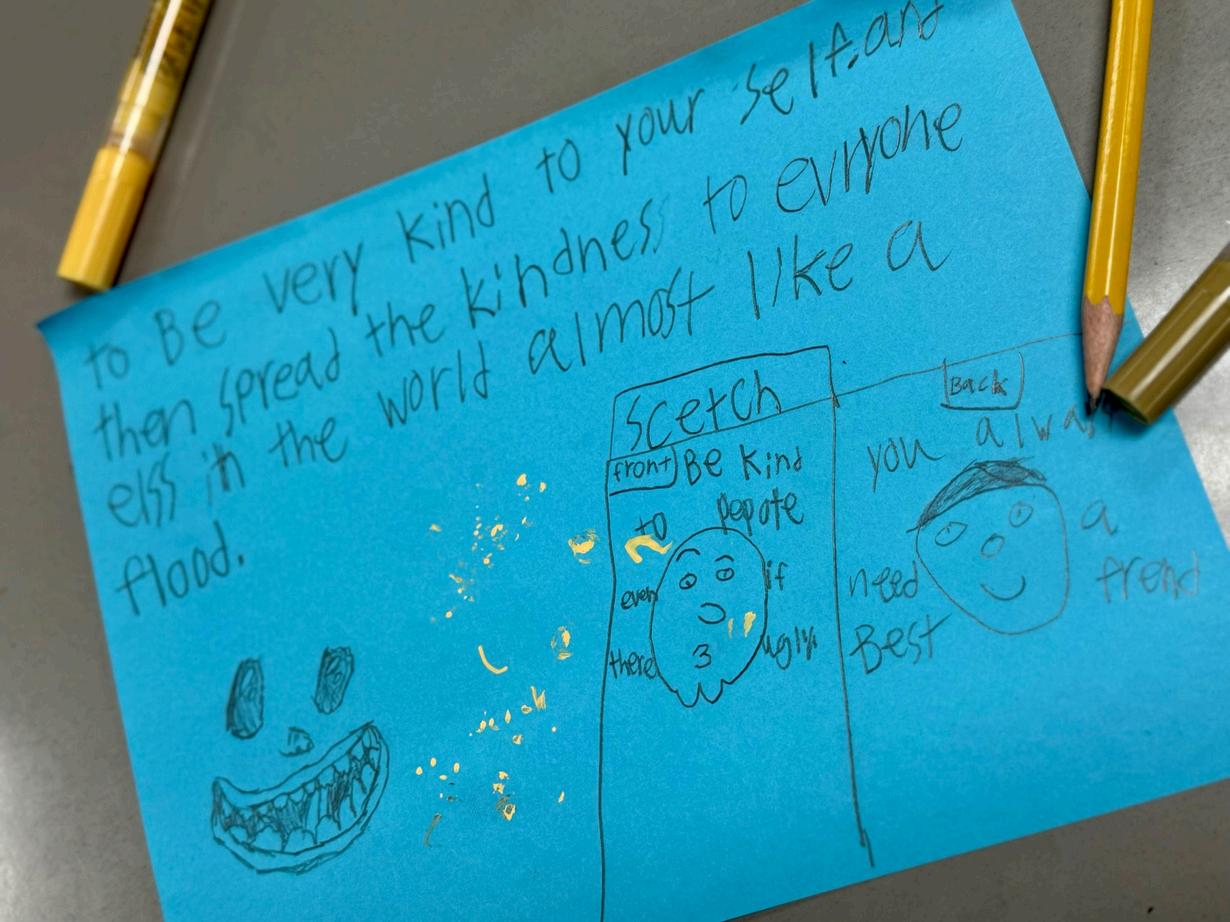 to Be very kind to your self. and
then spread the kindness to evryone
elss in the world almost like a
flood.
scetch
front
Be kind
to pepote
even if
there ugly
Back
you alway
need a
Best frend